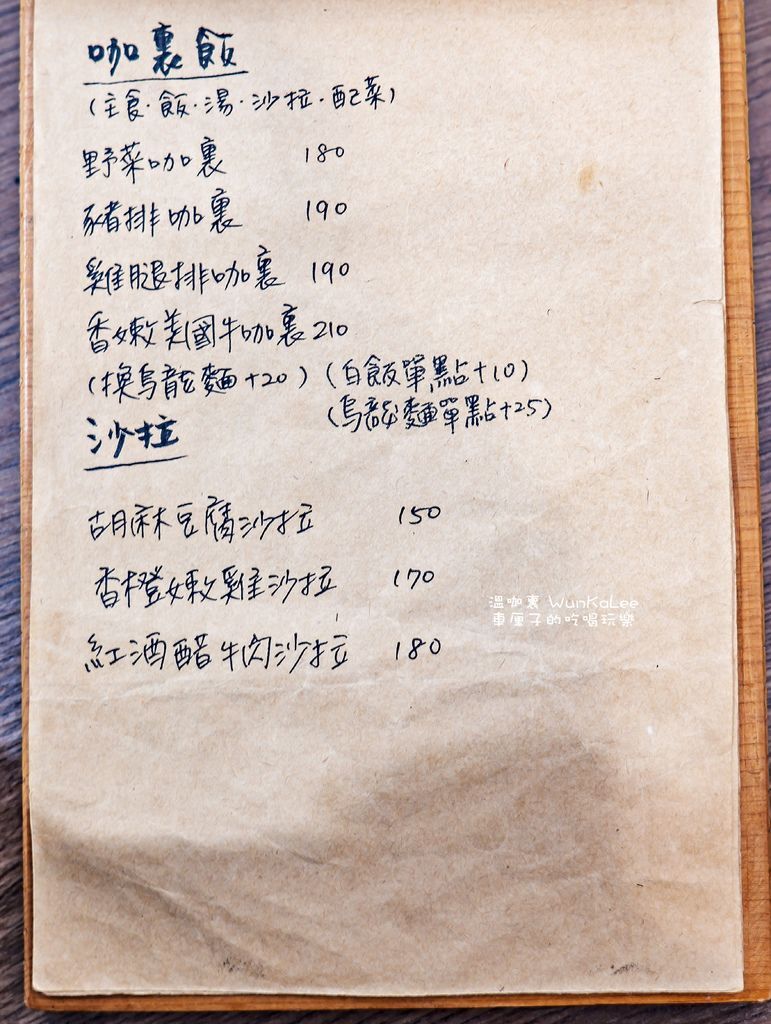 咖裏飯
(主食·飯·湯·沙拉·配菜)
野菜咖裏 180
豬排咖裏 190
雞腿排咖裏 190
香嫩美國牛咖裏 210
(換烏龍麵+20) (白飯單點+10)
(烏龍麵單點+25)
沙拉
胡麻豆腐沙拉 150
香橙嫩雞沙拉 170
紅酒醋牛肉沙拉 180
溫咖裏 WunKaLee
車厘子的吃喝玩樂